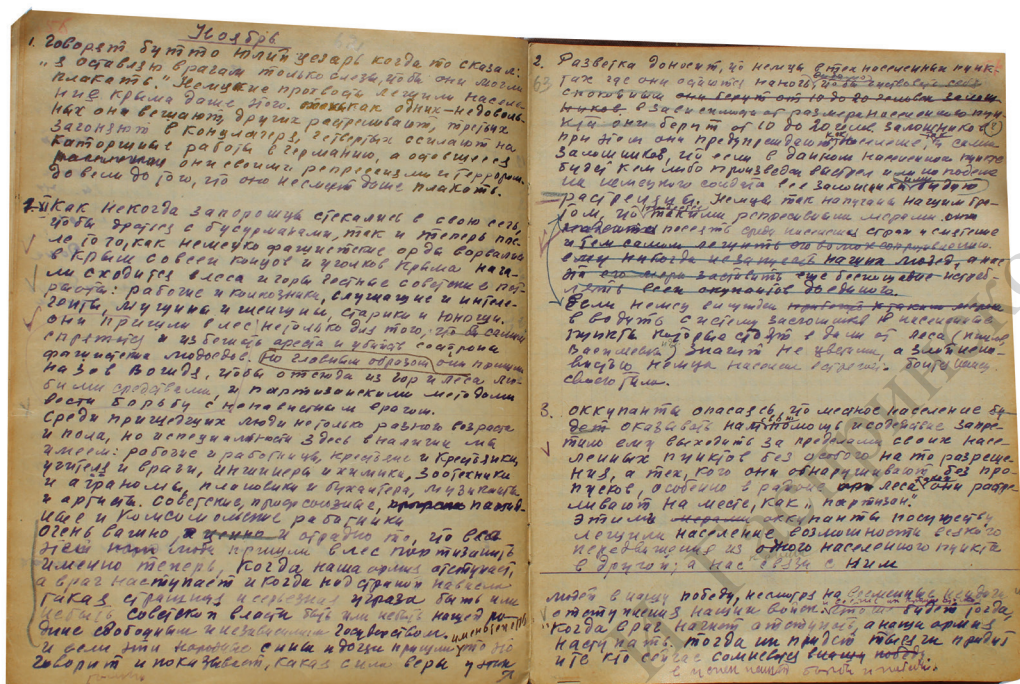 Ноябрь
1. Говорят бутто Юлий цезарь когда то сказал:
"Я оставляю врагам только слезы, чтобы они могли
плакать". Немужние протвоты лешили населе-
ние крыма даже этого. как одних-недоволь-
ных они вешают, других растреливают, третьих
загоняют в концлагеря, четвертых ссилают на
каторжние работы в германию, а
они своими репрессиями и террором
довели до того, что оно несмеит даже плакать.
2. Как некогда запорожцы стекались в свою сечь,
чтобы драться с бусурманами, так и теперь пос-
ле того, как немецко фашистские орды ворвались
в Крым со всех концов и уголков Крыма нача-
ли сходится в леса и горы честные советские пат-
риоты: рабочие и колхозники, служащие и интеле-
генты, мущины и женщины, старики и юноши.
они пришли в лес не только для того, что б самим
спрятатся и избежать ареста и убийств со стороны
фашистских людоедов. но главным образом они пришли
на зов вождя, чтобы отсюда из гор и леса лю-
быми средствами, и партизанскими методами
вести борьбу с ненавистным врагом.
Среди пришедших люди не только разного возроста
и пола, но и специальности здесь в наличии мы
имеем: рабочие и работницы, крестьяне и крестьянки,
учителя и врачи, инжинеры и химики, зоотехники
и аграномы, плановики и бухгалтера, музиканты
и артисты. советские, профсоюзные, партий-
ные и комсомолские работники
очень важно, и ценно и отрадно то, что все
эти люди пришли в лес партизанить
именно теперь, когда наша армия отступает,
а враг наступает и когда над страной нависла
такая страшная и серьезная угроза быть или
не быть советской власти быть или не быть нашей ро-
дине свободным и независимым государством. именно теперь
и если эти сыны и дочки пришли, то это
говорит и показывает, какая сила веры у этих
2. Разветка доносит, что немцы в тех населенных пунк-
63
тах где они остаются на ночь,
спокойными они берут от 10 до 20 человек залож-
ников в зависимости от размера населенного пун-
кта они берут от 10 до 20 челов. заложников
при этом они предупреждают и население, и самих
заложников, что если в данном населенном пункте
будет кем либо произведен выстрел или но
на немецкого солдата все заложники будут
растреляны. Немцы так напуганы нашим
что такими репресивными мерами они
посеять среди населения страх и смятение
и тем самим лешить его воли к сопротивлению.
ему никогда не запугать наших людей, а нас
эта его мера заставить еще беспощаднее истреб-
лять всех окупантов до единого.
Если немец вынужден
вводить систему заложников в населенных
пунктах которые стоят в дали от леса
значит не цветами, а злой нена-
вистью немца население встречает. боится немец
своего тила.
3. оккупанты опасаясь, что местное население бу-
дет оказывать нам помощь и содействие запре-
тило ему выходить за пределами своих насе-
ленных пунктов без особого на то розреше-
ния, а тех, кого они обнаруживают, без про-
пусков, особенно в районе леса они растре-
ливают на месте, как "партизан".
Этим оккупанты по существу
лешили население возможности всякого
передвижения из одного населенного пункта
в другой; а нас связи с ним
людей в нашу победу, несмотря на временные неудачи и
отступления наших войск. будет тогда,
когда враг начнет отступать, а наши армия
наступать. тогда к нам придет тысячи придут
и те кто сейчас сомневается в нашу победу.